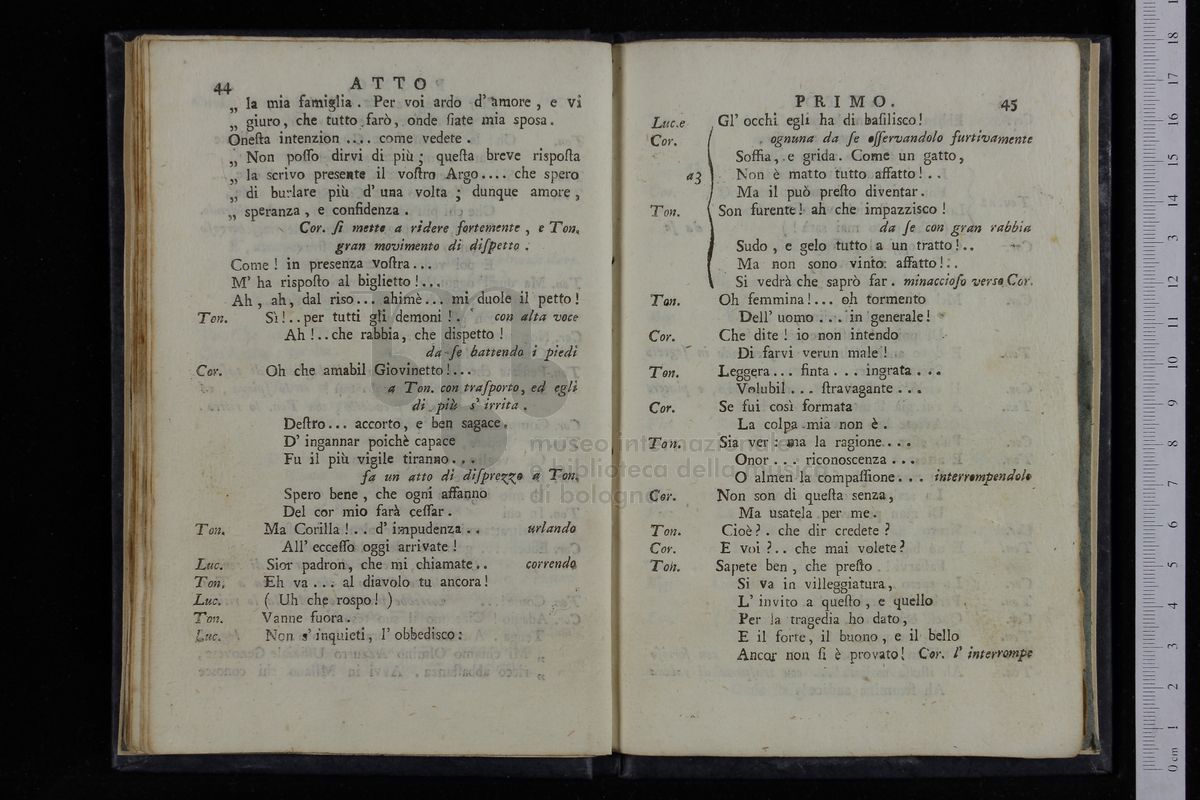 44 ATTO
„ la mia famiglia . Per voi ardo d' amore , e vi
„ giuro, che tutto farò, onde ſiate mia spoſa.
Oneſta intenzion .... come vedete .
„ Non poſſo dirvi di più ; queſta breve riſpoſta
„ la scrivo presente il voſtro Argo.... che spero
„ di burlare più d' una volta ; dunque amore ,
„ speranza , e confidenza .
Cor. ſi mette a ridere fortemente , e Ton.
gran movimento di diſpetto .
Come ! in presenza voſtra...
M' ha riſpoſto al biglietto !...
Ah , ah, dal riso... ahimè... mi duole il petto !
Ton. Sì!..per tutti gli demoni ! . con alta voce
Ah !..che rabbia, che dispetto !
da ſe battendo i piedi
Cor. Oh che amabil Giovinetto!...
a Ton. con traſporto, ed egli
di più s' irrita .
Deſtro... accorto, e ben sagace.
D' ingannar poichè capace
Fu il più vigile tiranno...
fa un atto di diſprezzo a Ton.
Spero bene , che ogni affanno
Del cor mio farà ceſſar.
Ton. Ma Corilla ! . . d' impudenza . . urlando
All' ecceſſo oggi arrivate !
Luc. Sior padron, che mi chiamate.. correndo
Ton. Eh va ... al diavolo tu ancora!
Luc. ( Uh che rospo! )
Ton. Vanne fuora.
Luc. Non s' inquieti, l' obbedisco:
PRIMO. 45
Luc.e Gl' occhi egli ha di baſilisco!
Cor. ognuna da ſe oſſervandolo furtivamente
Soffia, e grida. Come un gatto,
a3 Non è matto tutto affatto! . .
Ma il può preſto diventar.
Ton. Son furente! ah che impazzisco !
da ſe con gran rabbia
Sudo , e gelo tutto a un tratto!..
Ma non sono vinto: affatto!..
Si vedrà che saprò far. minaccioſo verso Cor.
Ton. Oh femmina!... oh tormento
Dell' uomo ... in generale!
Cor. Che dite ! io non intendo
Di farvi verun male !
Ton. Leggera... finta . . . ingrata . . .
Volubil . . . ſtravagante . . .
Cor. Se fui così formata
La colpa mia non è .
Ton. Sia ver : ma la ragione. . . .
Onor . . . riconoscenza . . .
O almen la compaſſione. . . interrompendolo
Cor. Non son di queſta senza,
Ma usatela per me .
Ton. Cioè? . che dir credete ?
Cor. E voi ?.. che mai volete?
Ton. Sapete ben , che preſto
Si va in villeggiatura,
L' invito a queſto , e quello
Per la tragedia ho dato,
E il forte, il buono, e il bello
Ancor non ſi è provato! Cor. l' interrompe
museo internazionale
e biblioteca della musica
di bologna
0 cm 1 2 3 4 5 6 7 8 9 10 11 12 13 14 15 16 17 18